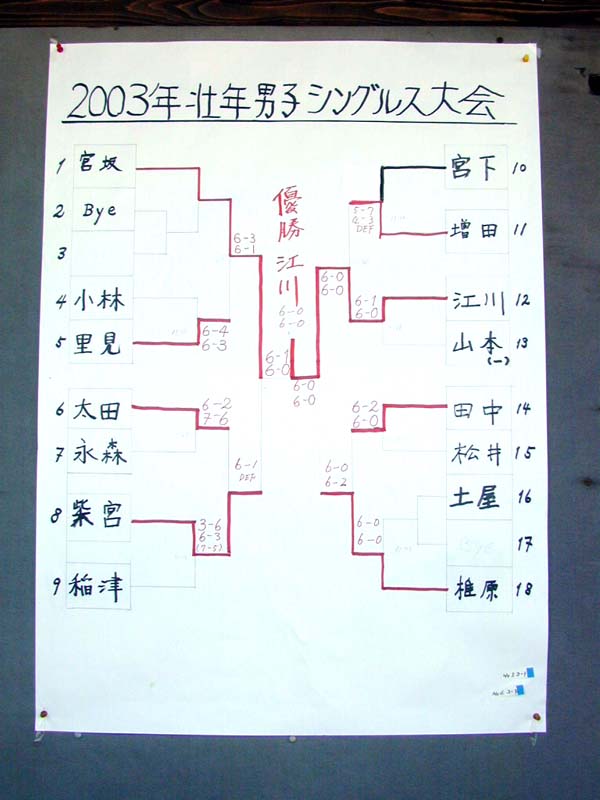 2003年壮年男子シングルス大会
優勝 江川
1 宮坂
2 Bye
3
4 小林
5 里見
6 太田
7 永森
8 柴宮
9 稲津
6-3
6-1
6-4
6-3
6-2
7-6
6-1
DEF
3-6
6-3
(7-5)
6-1
6-0
6-0
6-0
6-0
6-0
宮下 10
増田 11
江川 12
山本(一) 13
田中 14
松井 15
土屋 16
Bye 17
椎原 18
5-7
DEF
6-0
6-0
6-1
6-0
6-2
6-0
6-0
6-2
6-0
6-0